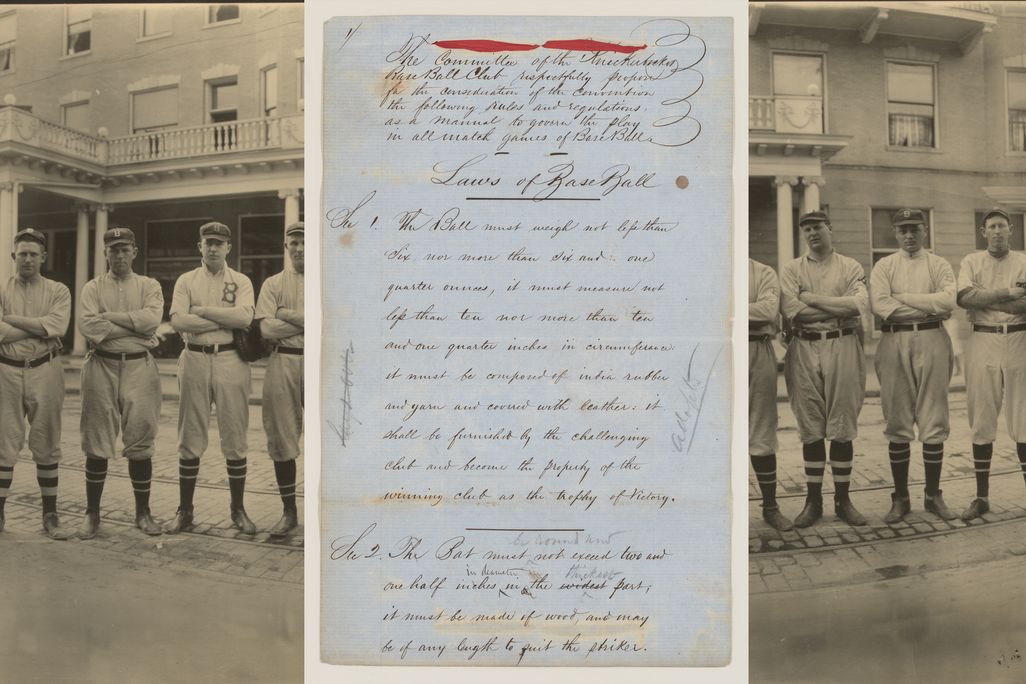 1/
The Committee of the Knickerbocker
Base Ball Club respectfully propose
for the consideration of the convention
the following rules and regulations,
as a manual to govern the play
in all match games of Base Ball.
Laws of Base Ball
Sec 1. The Ball must weigh not less than
Six nor more than Six and one
quarter ounces, it must measure not
less than ten nor more than ten
and one quarter inches in circumference:
it must be composed of india rubber
and yarn and covered with leather: it
shall be furnished by the challenging
club and become the property of the
winning club as the trophy of Victory.
adopts
be round and
Sec 2. The Bat must not exceed two and
in diameter thickest
one half inches in the widest part;
it must be made of wood, and may
be of any length to suit the striker.
B
B
B
B